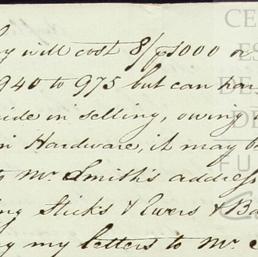 y will cost 8/ 1000 or
940 to 975 but can har
ide in selling, owing
in Hardware, it may be
to Mr Smith's address
ng Sticks & Ewers & Ba
y my letters to Mr S
CE
ES
DE
DO
FU